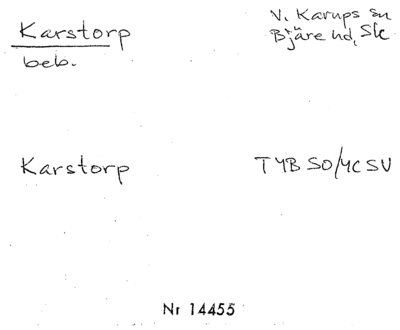 Karstorp
V. Karups sn
beb.
Bjäre hd, Sk
Karstorp
TYB SO/YC SV
Nr 14455